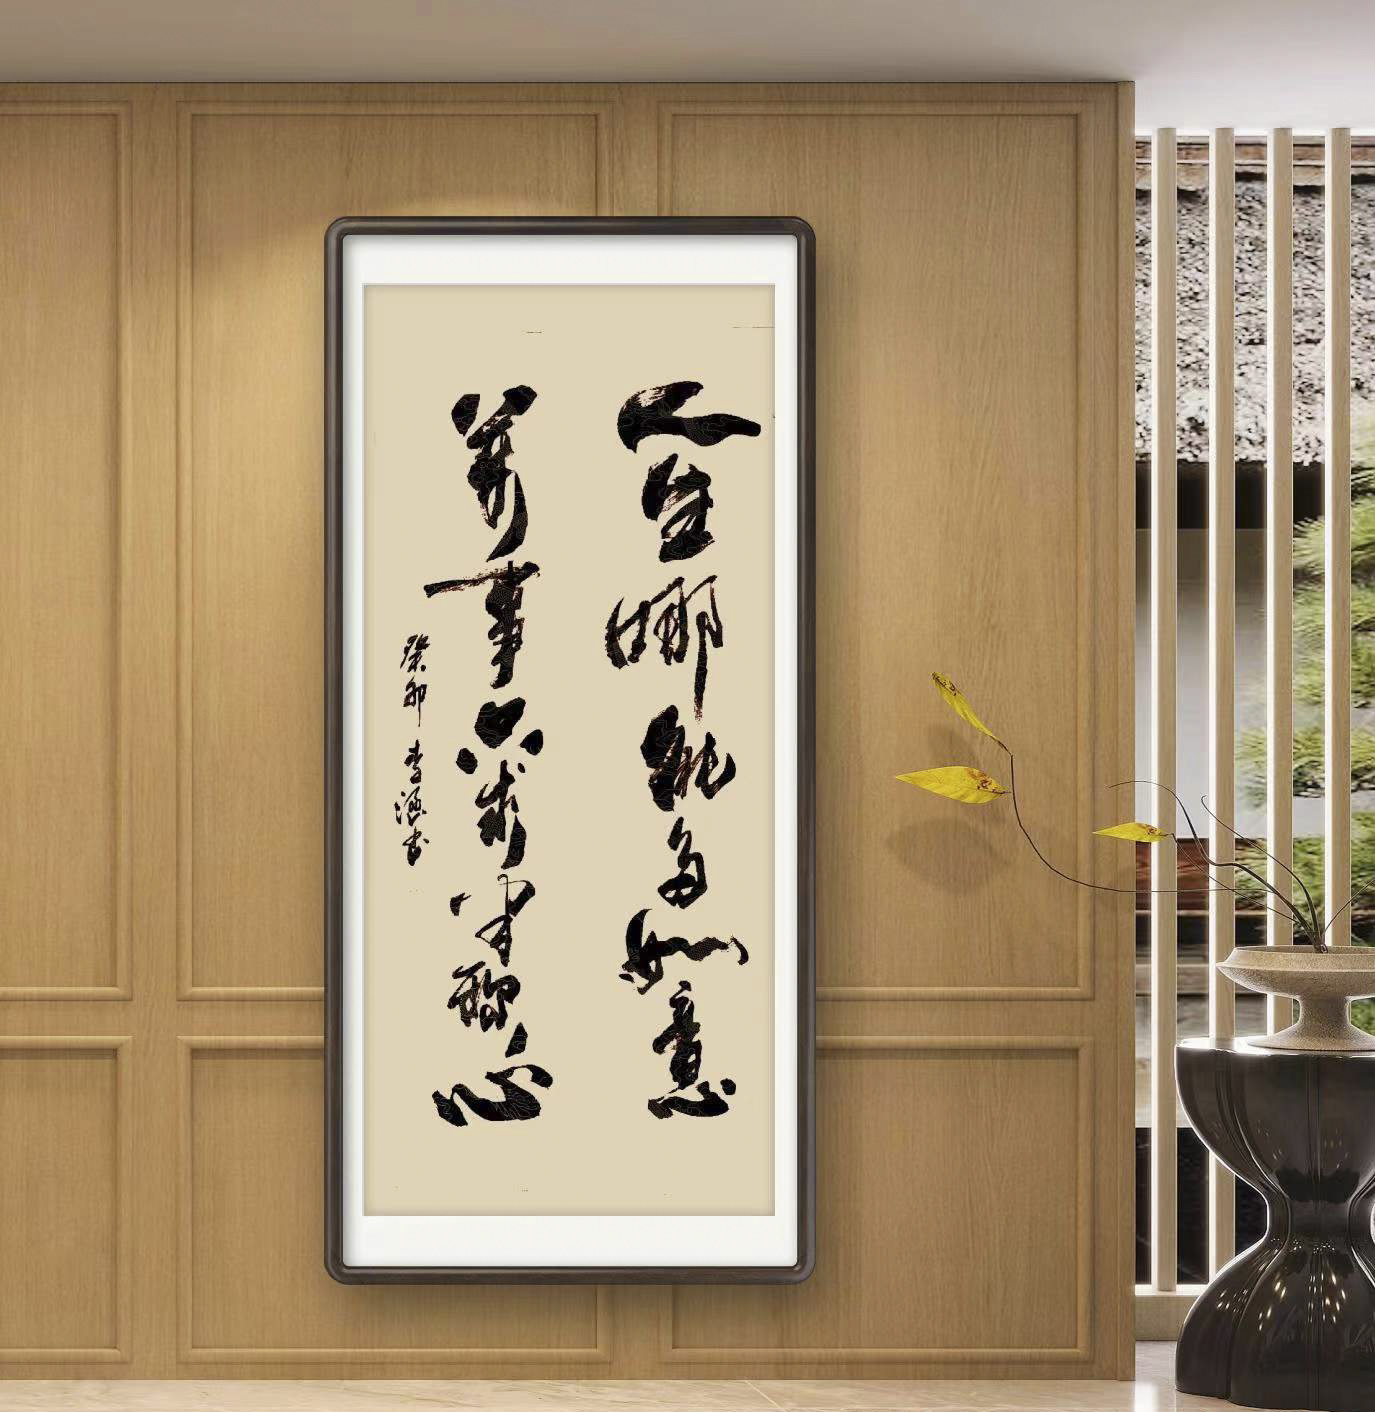 人生哪能多如意
萬事只求半称心
癸卯 李涵书